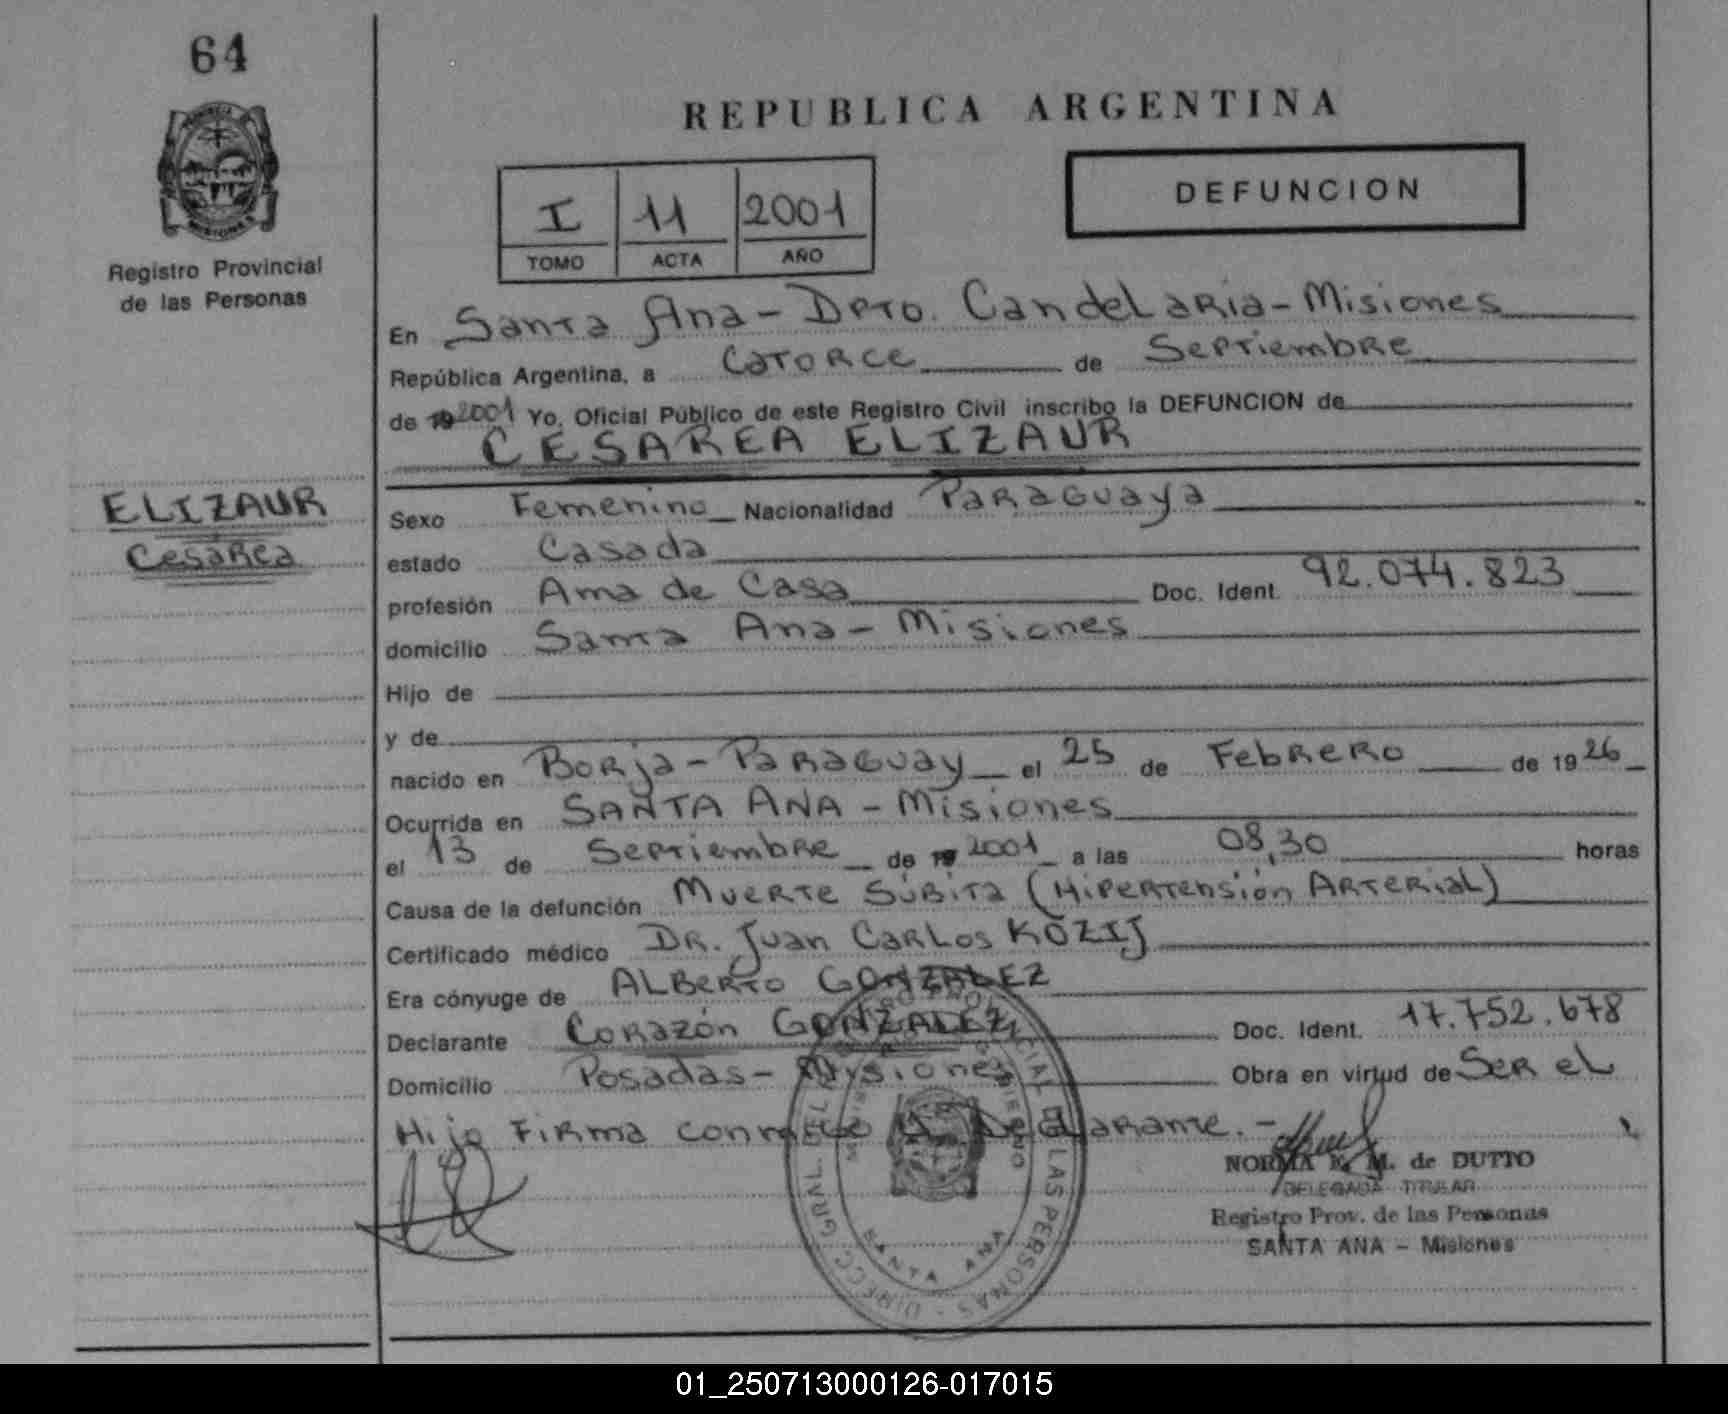 64
PROVINCIA
MISIONES
Registro Provincial
de las Personas
REPUBLICA ARGENTINA
I 11 2001
TOMO ACTA AÑO
DEFUNCION
En Santa Ana - Dpto. Candelaria - Misiones
República Argentina, a Catorce de Septiembre
de 19 2001 Yo, Oficial Público de este Registro Civil inscribo la DEFUNCION de
CESAREA ELIZAUR
ELIZAUR
Cesárea
Sexo Femenino Nacionalidad Paraguaya
estado Casada
profesión Ama de Casa Doc. Ident. 92.074.823
domicilio Santa Ana - Misiones
Hijo de
y de
nacido en Borja - Paraguay el 25 de Febrero de 1926
Ocurrida en SANTA ANA - Misiones
el 13 de Septiembre de 19 2001 a las 08,30 horas
Causa de la defunción Muerte Súbita (Hipertensión Arterial)
Certificado médico Dr. Juan Carlos KOZIJ
Era cónyuge de Alberto GONZALEZ
Declarante Corazón GONZALEZ Doc. Ident. 17.752.678
Domicilio Posadas - Misiones Obra en virtud de Ser el
Hijo Firma conmigo el Declarante. -
DIRECC. GRAL. DEL REGISTRO PROVINCIAL DE LAS PERSONAS
MINISTERIO DE GOBIERNO
SANTA ANA
NORMA E. M. de DUTTO
DELEGADA TITULAR
Registro Prov. de las Personas
SANTA ANA - Misiones
01_250713000126-017015